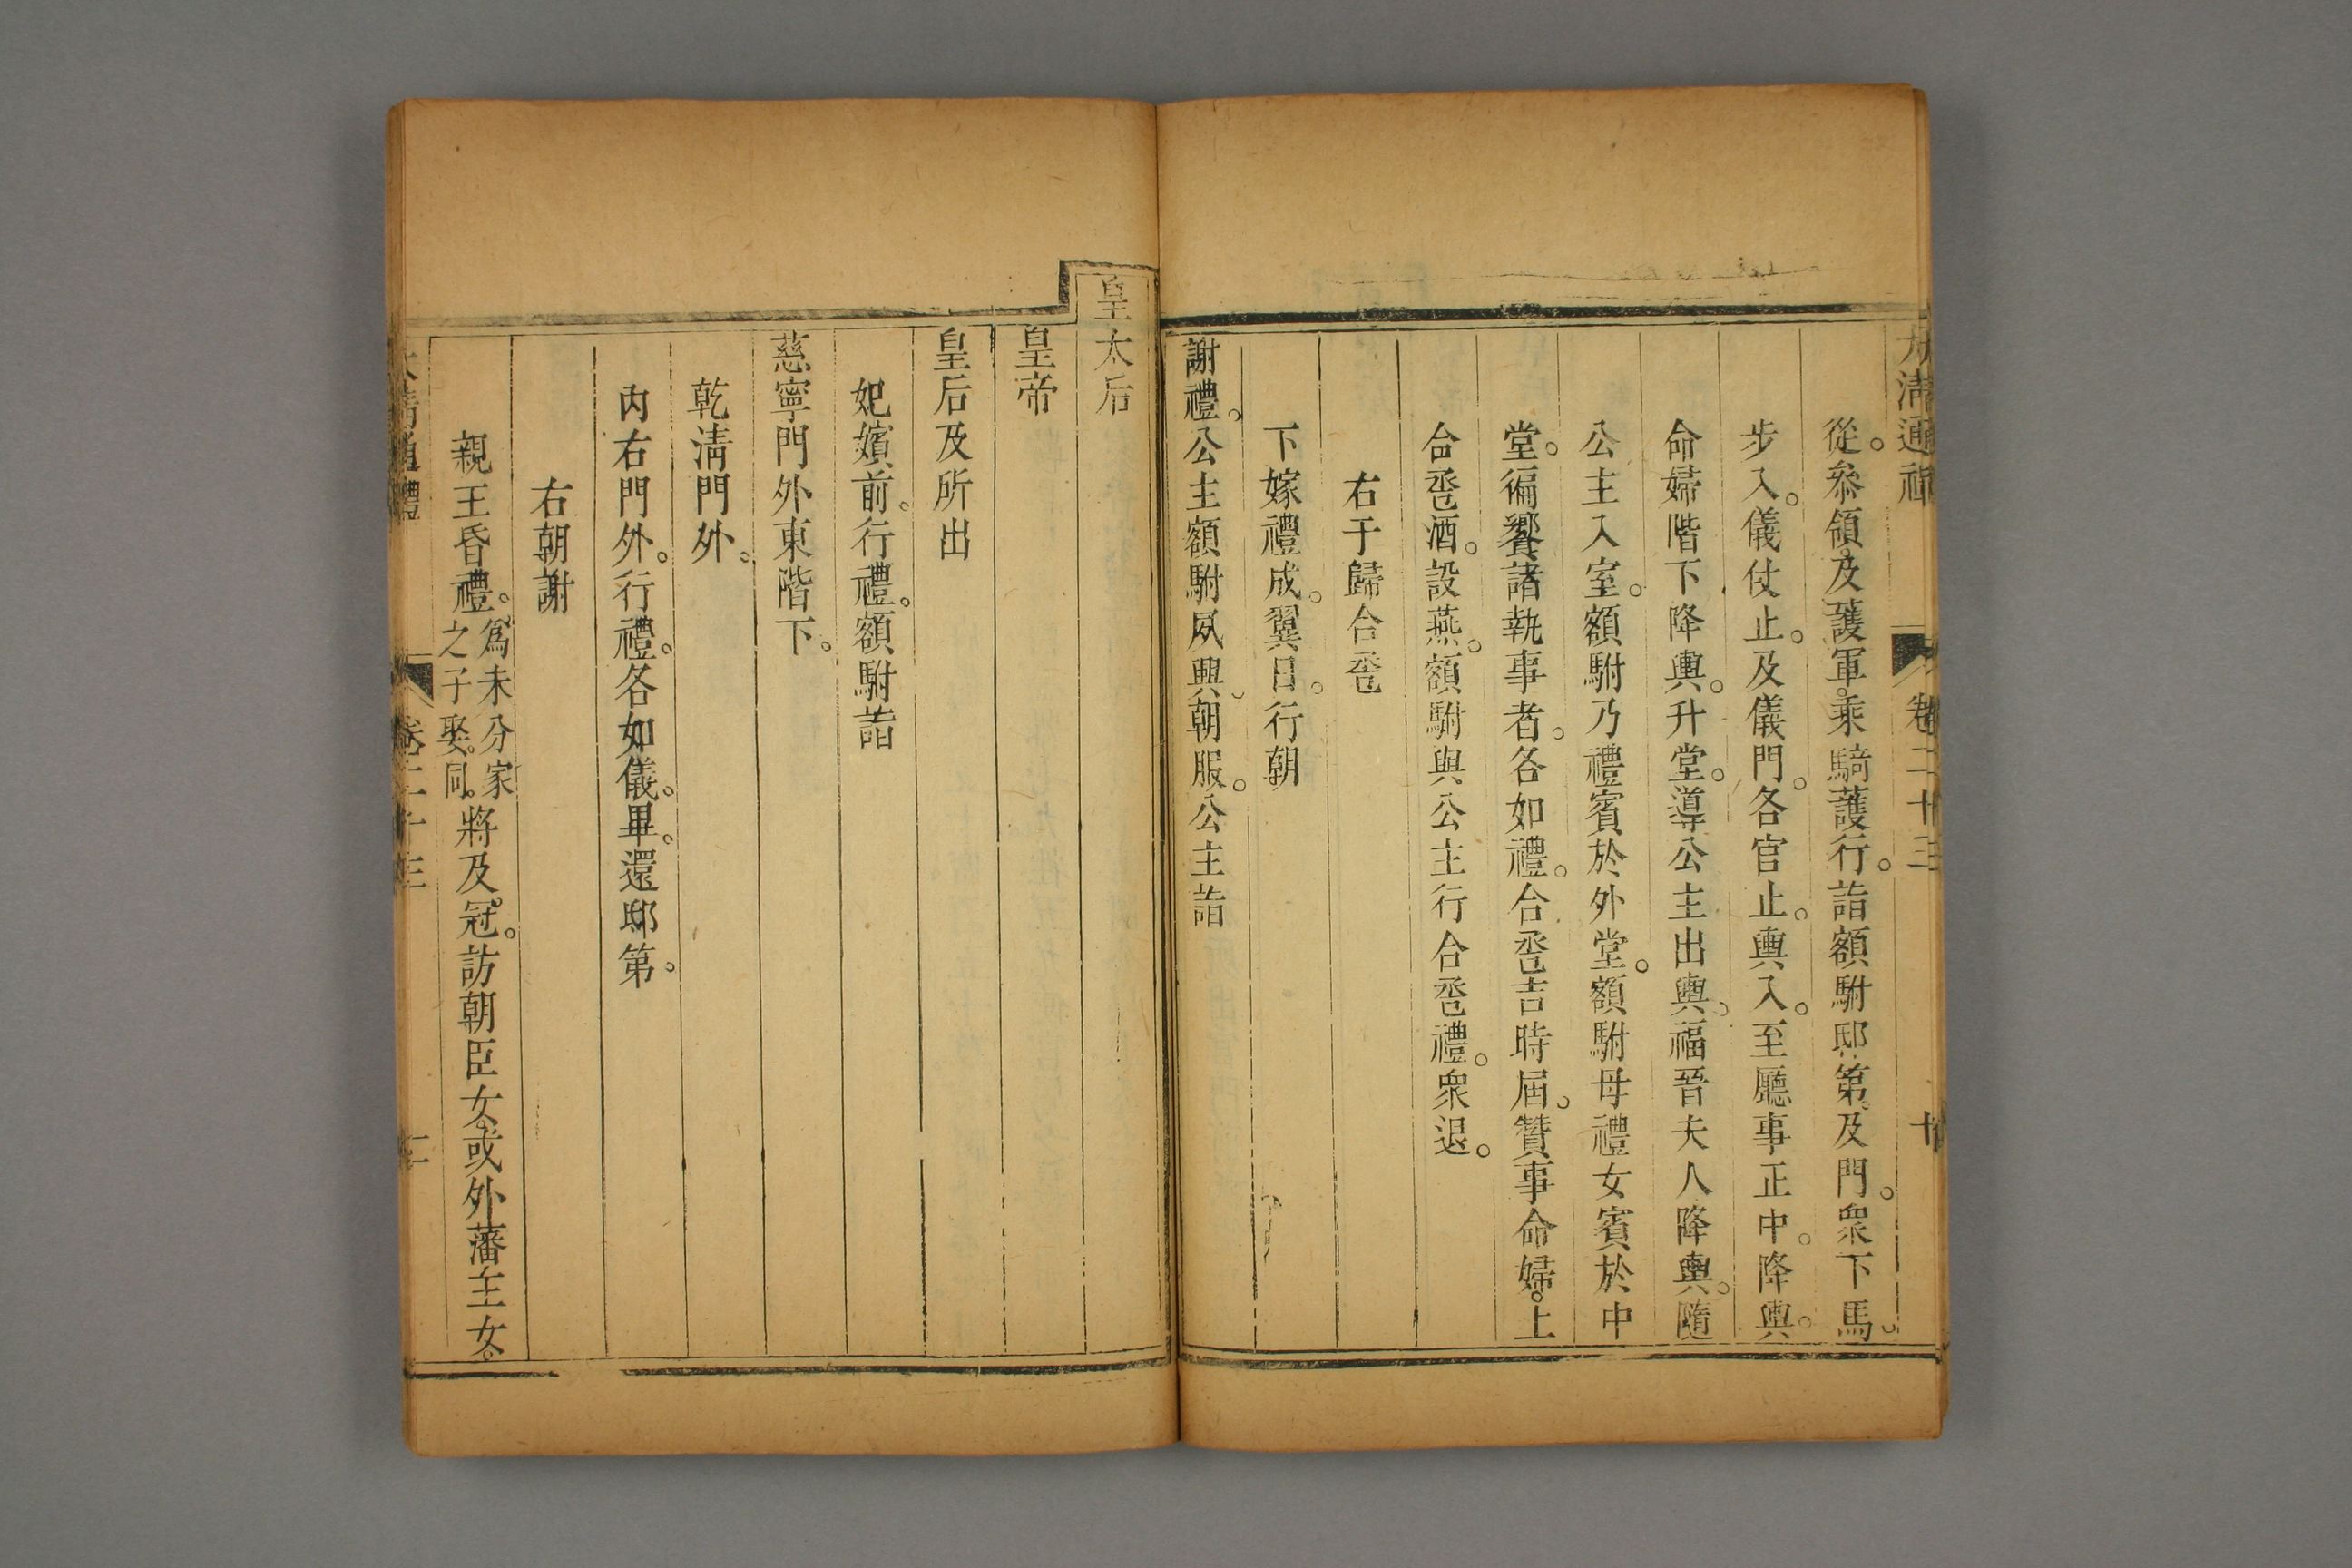 大清通禮 卷二十三 十
從。叅領及護軍。乘騎護行。詣額駙邸第。及門。衆下馬。
步入。儀仗止。及儀門。各官止。輿入。至廳事正中。降輿。
命婦階下降輿。升堂。導公主出輿。福晉夫人降輿。隨
公主入室。額駙乃禮賓於外堂。額駙母禮女賓於中
堂。徧饗諸執事者。各如禮。合卺吉時屆。贊事命婦。上
合卺酒。設燕。額駙與公主行合卺禮。衆退。
右于歸合卺
下嫁禮成。翼日。行朝
謝禮。公主額駙夙興。朝服。公主詣
皇太后
皇帝
皇后及所出
妃嬪前。行禮。額駙詣
慈寧門外東階下。
乾淸門外。
內右門外。行禮。各如儀。畢。還邸第。
右朝謝
親王昏禮。爲未分家之子娶。同。將及冠。訪朝臣女。或外藩主女。
大清通禮 卷二十三